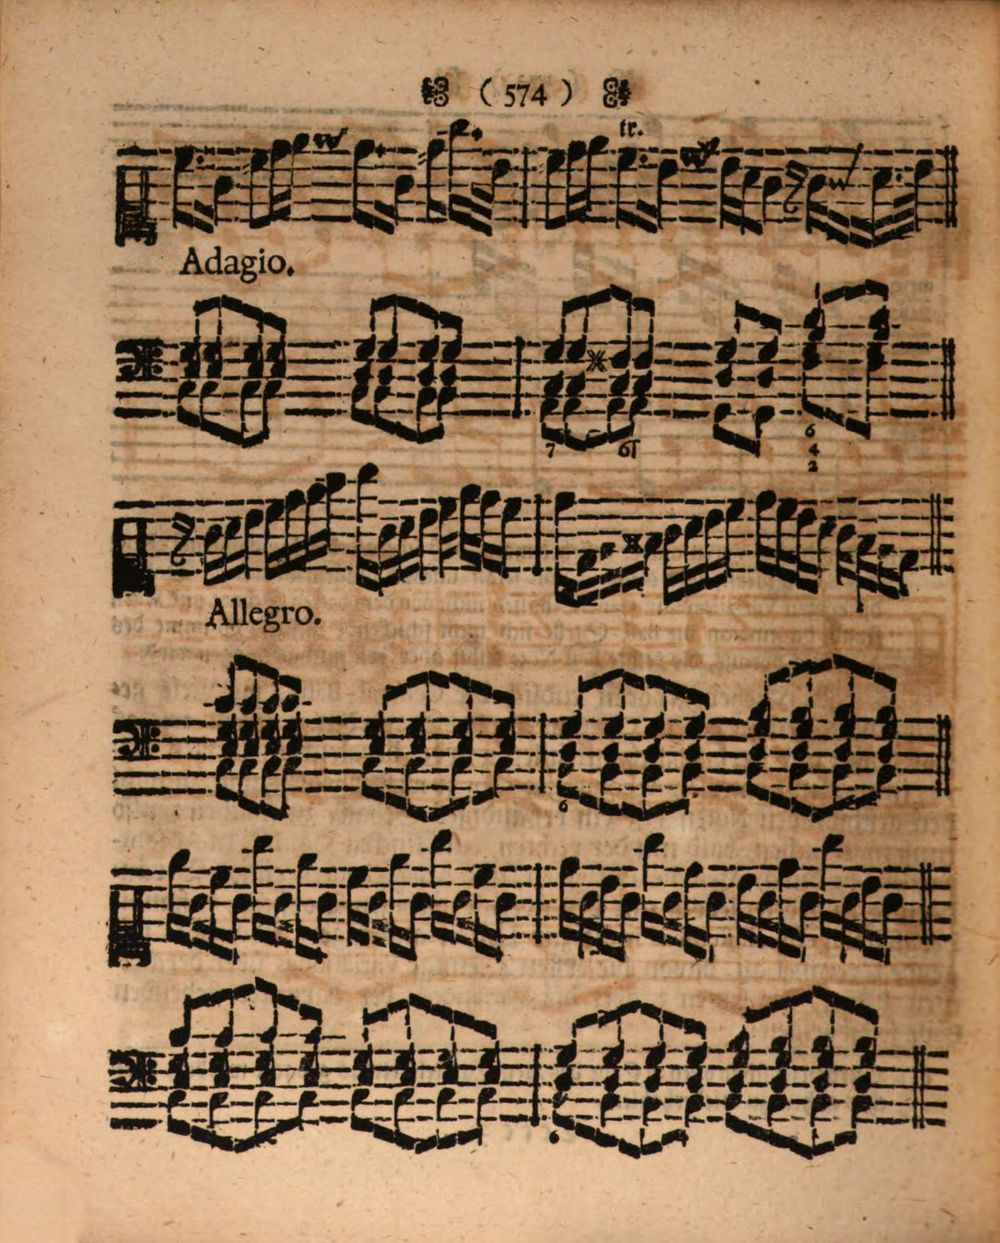 ( 574 )
tr.
Adagio.
7 6
6
4
2
Allegro.
6